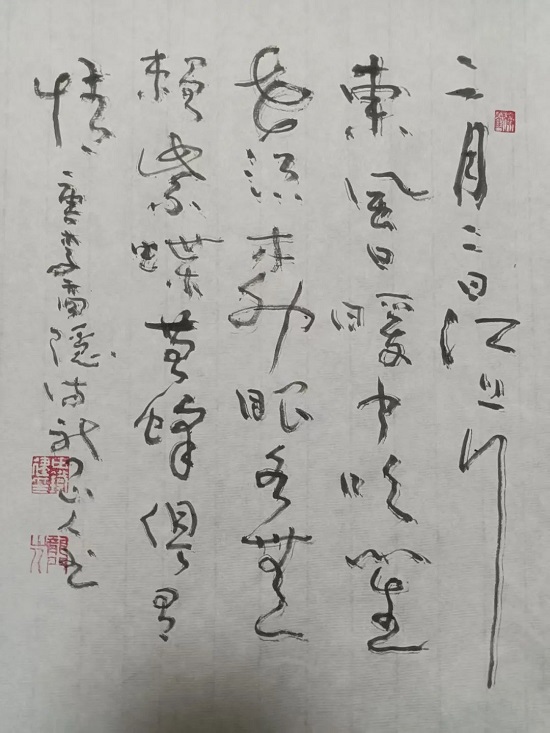 二月二日江上行
東風日暖闻吹笙
花須柳眼各無
賴紫蝶黄蜂俱有
情 唐李商隱诗 书